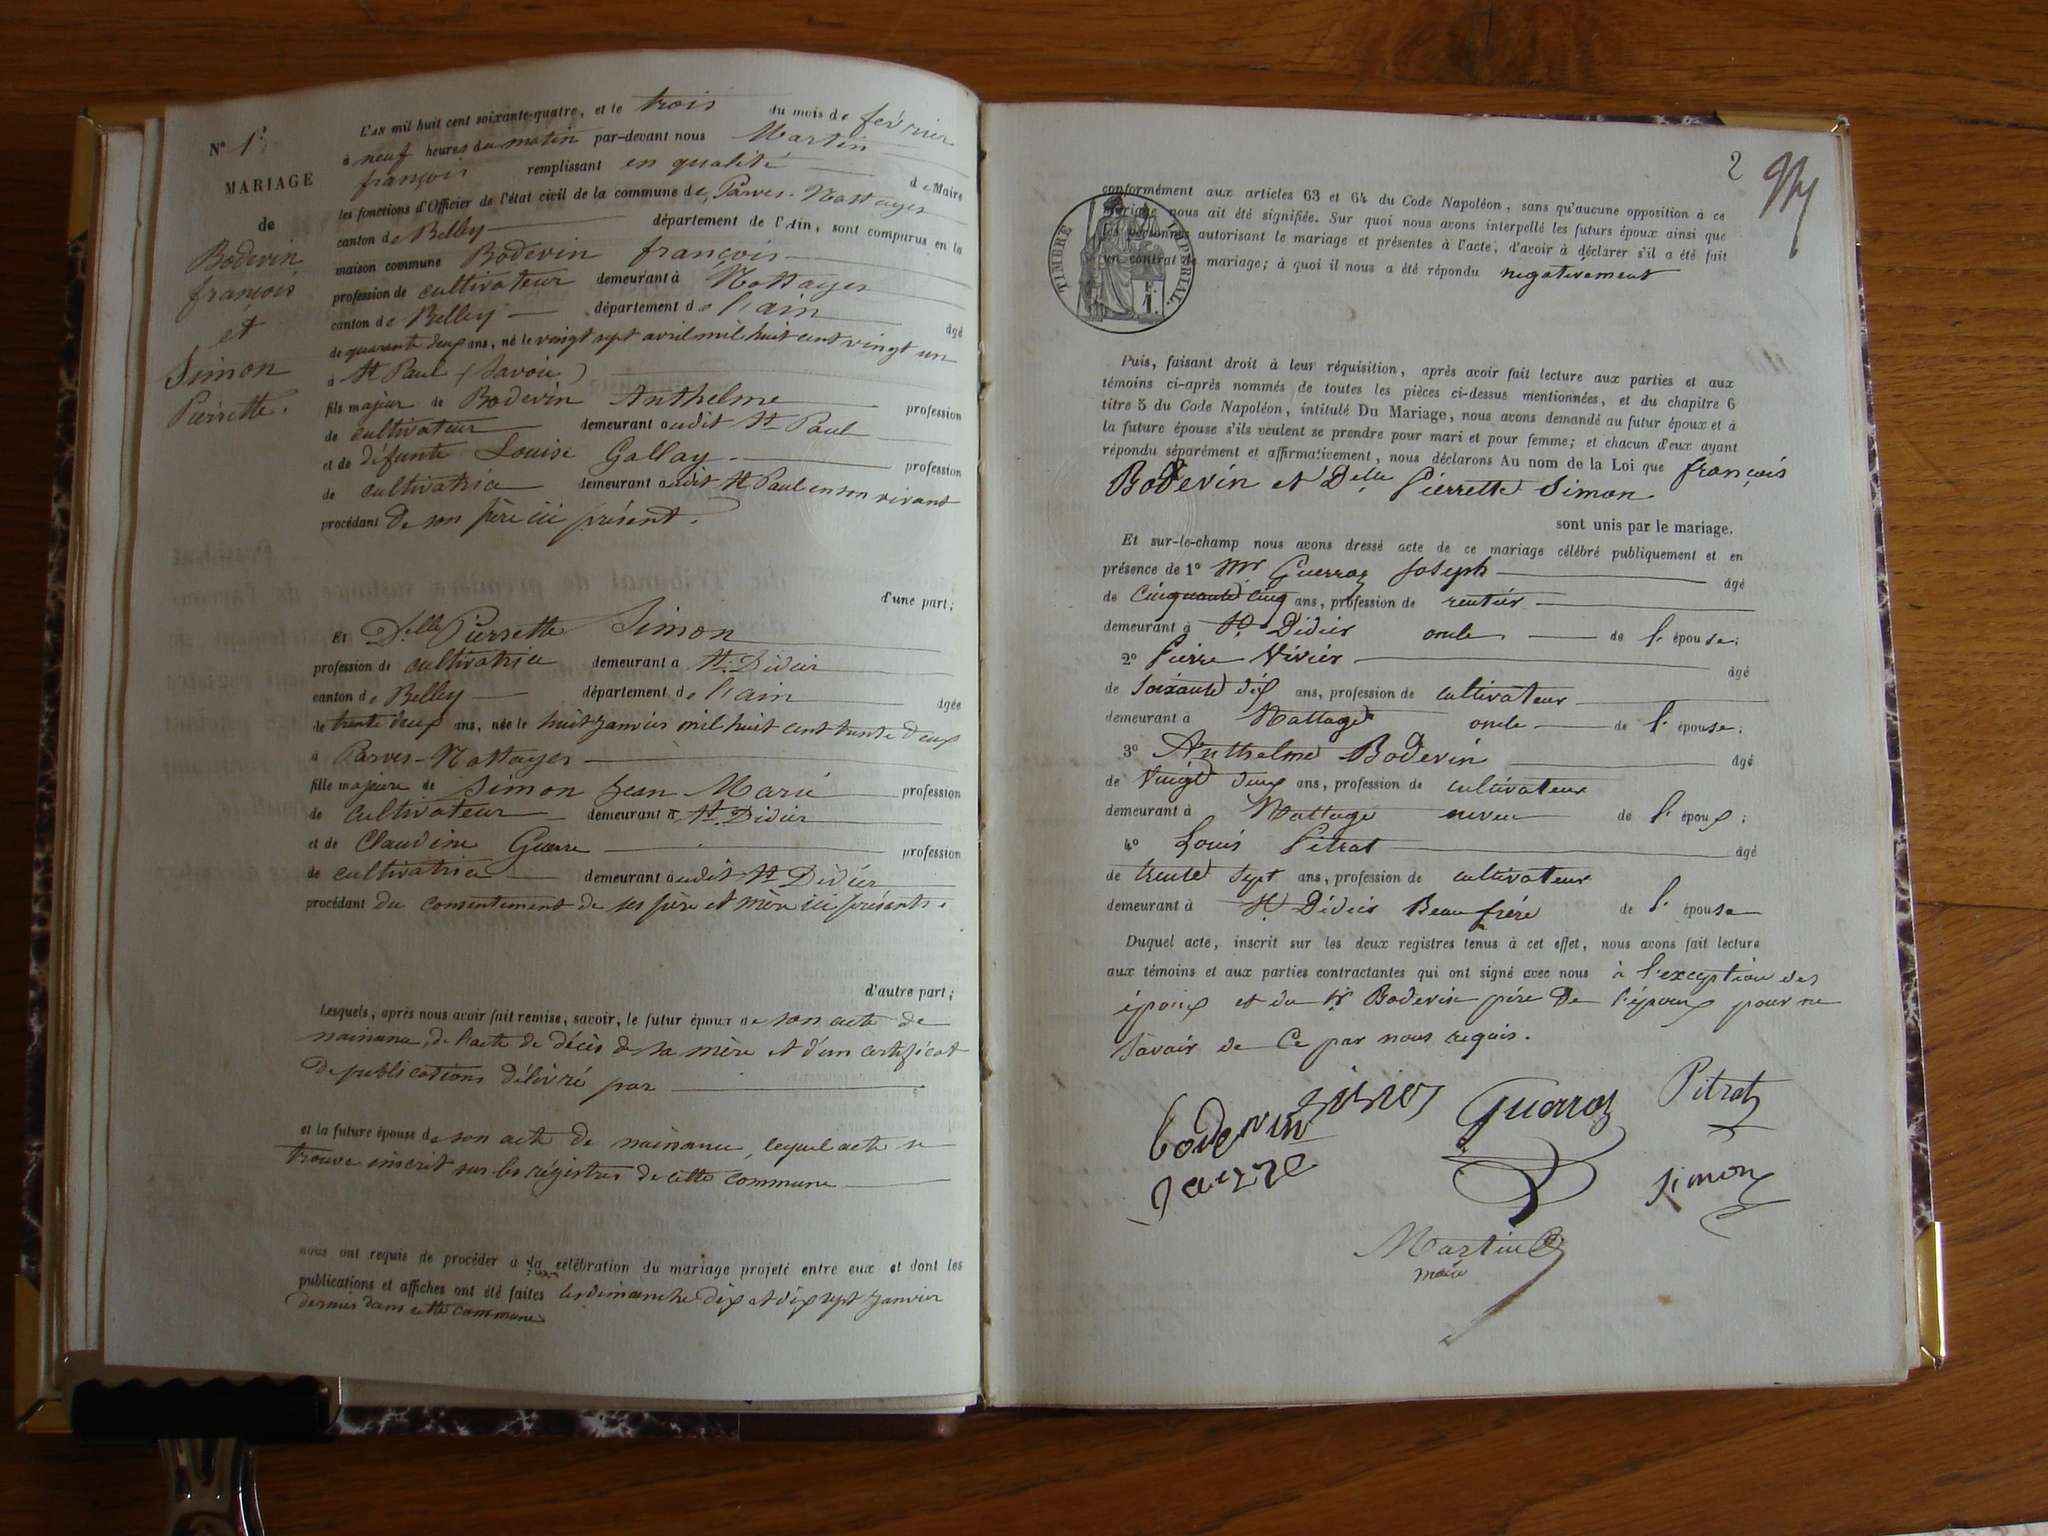 N° 1.
MARIAGE
de
Bodevin
françois
et
Simon
Pierrette.
L'AN mil huit cent soixante-quatre, et le trois du mois de février
à neuf heures du matin par-devant nous Martin
françois remplissant en qualité de Maire
les fonctions d'Officier de l'état civil de la commune de Parves-Nattages
canton de Belley département de l'Ain, sont comparus en la
maison commune Bodevin françois
profession de cultivateur demeurant à Nattages
canton de Belley département de l'ain âgé
de quarante deux ans, né le vingt sept avril mil huit cent vingt un
à St Paul (Savoie)
fils majeur de Bodevin Anthelme profession
de cultivateur demeurant audit St Paul
et de défunte Louise Gallay profession
de cultivatrice demeurant audit St Paul en son vivant
procédant de son père ici présent.
d'une part;
Et Delle Pierrette Simon
profession de cultivatrice demeurant à St. Didier
canton de Belley département de l'ain âgée
de trente deux ans, née le huit janvier mil huit cent trente deux
à Parves-Nattages
fille majeure de Simon Jean Marie profession
de cultivateur demeurant à St. Didier
et de Claudine Guerre profession
de cultivatrice demeurant audit St Didier
procédant du consentement de ses père et mère ici présents.
d'autre part;
Lesquels, après nous avoir fait remise, savoir, le futur époux de son acte de
naissance, de l'acte de décès de sa mère et d'un certificat
de publications délivré par
et la future épouse de son acte de naissance, lequel acte se
trouve inscrit sur les régistres de cette commune
nous ont requis de procéder à la célébration du mariage projeté entre eux et dont les
publications et affiches ont été faites les dimanche dix et dix sept janvier
dernier dans cette commune
2
conformément aux articles 63 et 64 du Code Napoléon, sans qu'aucune opposition à ce
mariage nous ait été signifiée. Sur quoi nous avons interpellé les futurs époux ainsi que
les personnes autorisant le mariage et présentes à l'acte, d'avoir à déclarer s'il a été fait
un contrat de mariage; à quoi il nous a été répondu négativement
TIMBRE IMPÉRIAL.
Puis, faisant droit à leur réquisition, après avoir fait lecture aux parties et aux
témoins ci-après nommés de toutes les pièces ci-dessus mentionnées, et du chapitre 6
titre 5 du Code Napoléon, intitulé Du Mariage, nous avons demandé au futur époux et à
la future épouse s'ils veulent se prendre pour mari et pour femme; et chacun d'eux ayant
répondu séparément et affirmativement, nous déclarons Au nom de la Loi que françois
Bodevin et Delle Pierrette Simon
sont unis par le mariage.
Et sur-le-champ nous avons dressé acte de ce mariage célébré publiquement et en
présence de 1° Mr Guerraz Joseph âgé
de cinquante cinq ans, profession de rentier
demeurant à St. Didier oncle de l'épouse;
2° Pierre Vivier âgé
de soixante dix ans, profession de cultivateur
demeurant à Nattage oncle de l'épouse;
3° Anthelme Bodevin âgé
de vingt deux ans, profession de cultivateur
demeurant à Nattage neveu de l'époux;
4° Louis Pitrat âgé
de trente sept ans, profession de cultivateur
demeurant à St Didier Beau frère de l'épouse
Duquel acte, inscrit sur les deux registres tenus à cet effet, nous avons fait lecture
aux témoins et aux parties contractantes qui ont signé avec nous à l'exception des
époux et du Sr Bodevin père de l'époux pour ne
savoir de ce par nous requis.
bodevin vivier Guerraz Pitrat
Simon
Martin
maire